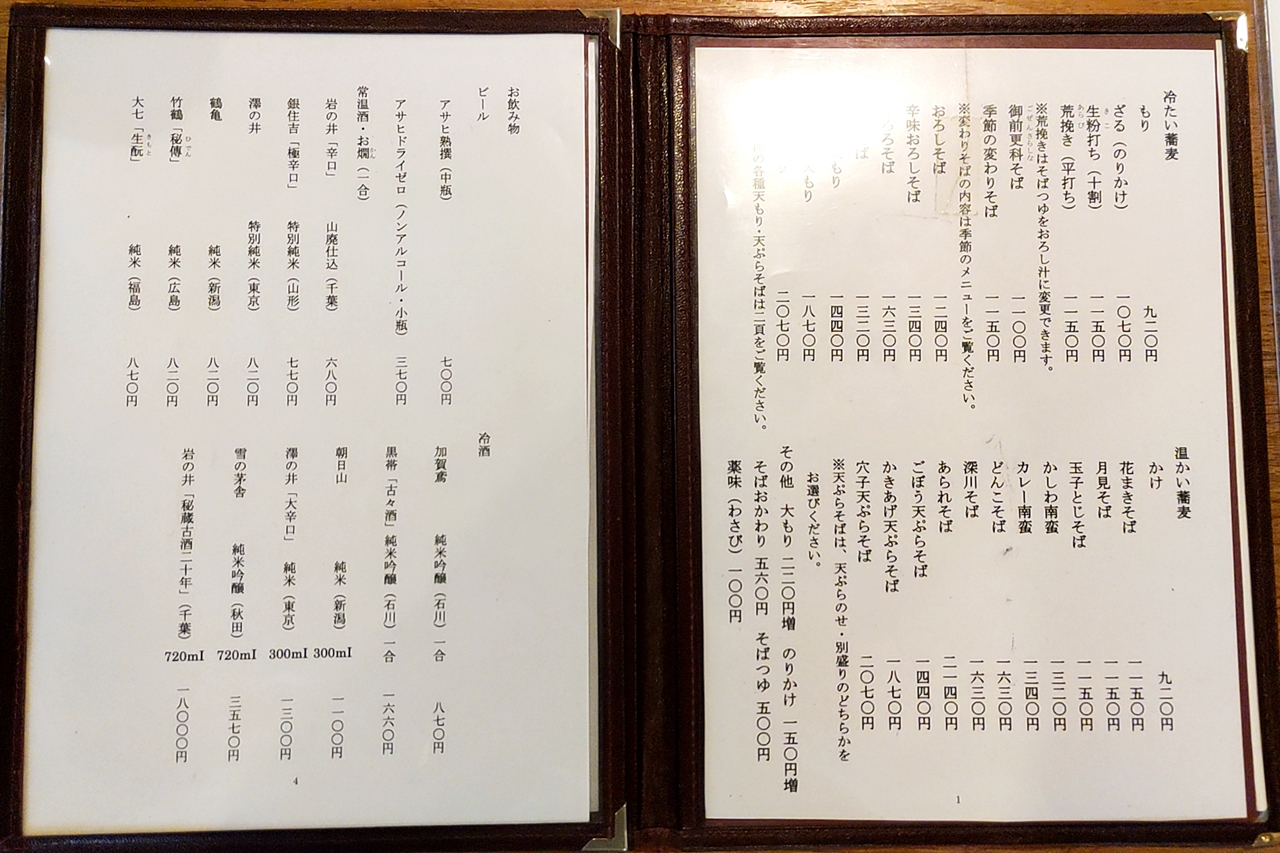 冷たい蕎麦
もり 九二〇円
ざる（のりかけ） 一〇七〇円
生粉打ち（十割） 一一五〇円
きこ
荒挽き（平打ち） 一一五〇円
あらび
※荒挽きはそばつゆをおろし汁に変更できます。
御前更科そば 一一〇〇円
ごぜんさらしな
季節の変わりそば 一一五〇円
※変わりそばの内容は季節のメニューをご覧ください。
おろしそば 一二四〇円
辛味おろしそば 一三四〇円
ろそば 一六三〇円
ば 一三二〇円
もり 一四四〇円
もり 一八七〇円
二〇七〇円
の各種天もり・天ぷらそばは二頁をご覧ください。
温かい蕎麦
かけ 九二〇円
花まきそば 一一五〇円
月見そば 一一五〇円
玉子とじそば 一一五〇円
かしわ南蛮 一三二〇円
カレー南蛮 一三四〇円
どんこそば 一六三〇円
深川そば 一六三〇円
あられそば 二一四〇円
ごぼう天ぷらそば 一四四〇円
かきあげ天ぷらそば 一八七〇円
穴子天ぷらそば 二〇七〇円
※天ぷらそばは、天ぷらのせ・別盛りのどちらかを
お選びください。
その他 大もり 二二〇円増 のりかけ 一五〇円増
そばおかわり 五六〇円 そばつゆ 五〇〇円
薬味（わさび） 一〇〇円
1
お飲み物
ビール
アサヒ熟撰（中瓶） 七〇〇円
アサヒドライゼロ（ノンアルコール・小瓶） 三七〇円
常温酒・お燗（一合）
かん
岩の井「辛口」 山廃仕込（千葉） 六八〇円
銀住吉「極辛口」 特別純米（山形） 七七〇円
澤の井 特別純米（東京） 八二〇円
鶴亀 純米（新潟） 八二〇円
竹鶴「秘傳」 純米（広島） 八二〇円
ひでん
大七「生酛」 純米（福島） 八七〇円
きもと
冷酒
加賀鳶 純米吟醸（石川）一合 八七〇円
黒帯「古々酒」純米吟醸（石川）一合 一六六〇円
朝日山 純米（新潟） 300ml 一一〇〇円
澤の井「大辛口」 純米（東京） 300ml 一三〇〇円
雪の茅舎 純米吟醸（秋田） 720ml 三五七〇円
岩の井「秘蔵古酒二十年」（千葉） 720ml 一八〇〇〇円
4